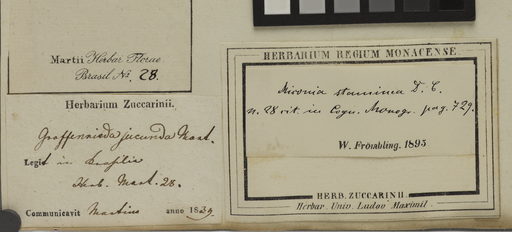 Martii Herbar Florae
Brasil No. 28.
Herbarium Zuccarinii.
Graffenrieda jucunda Mart.
Legit in Brasilia
Herb. Mart. 28.
Communicavit Martius anno 1839
HERBARIUM REGIUM MONACENSE
Miconia staminea D. C.
n. 28 cit. in Cogn. Monogr. pag. 729.
W. Fröhabling. 1895
HERB. ZUCCARINII
Herbar. Univ. Ludov. Maximil.